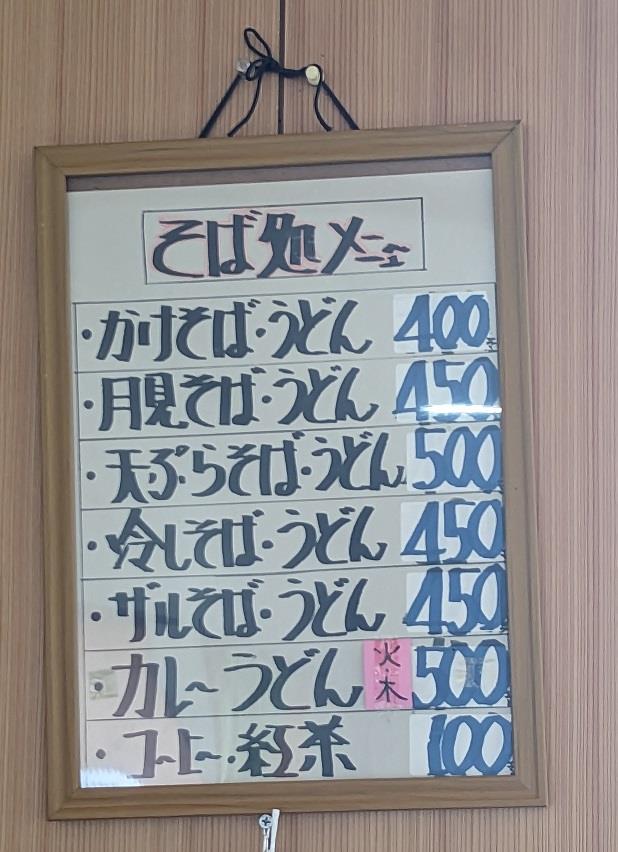 そば処メニュー
・かけそば・うどん 400
・月見そば・うどん 450
・天ぷらそば・うどん 500
・冷しそば・うどん 450
・ザルそば・うどん 450
・カレーうどん 火・木 500
・コーヒー・紅茶 100